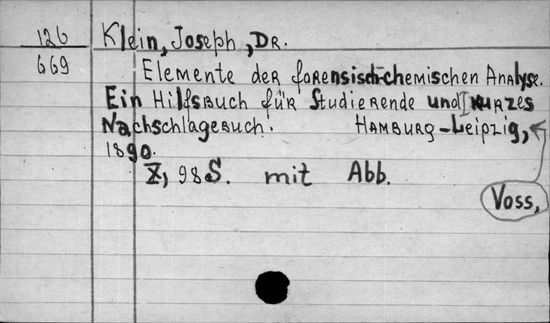 126
669
Klein, Joseph, Dr.
Elemente der forensisch-chemischen Analyse.
Ein Hilfsbuch für Studierende und kurzes
Nachschlagebuch. Hamburg-Leipzig,
Voss,
1890.
X, 98 S. mit Abb.